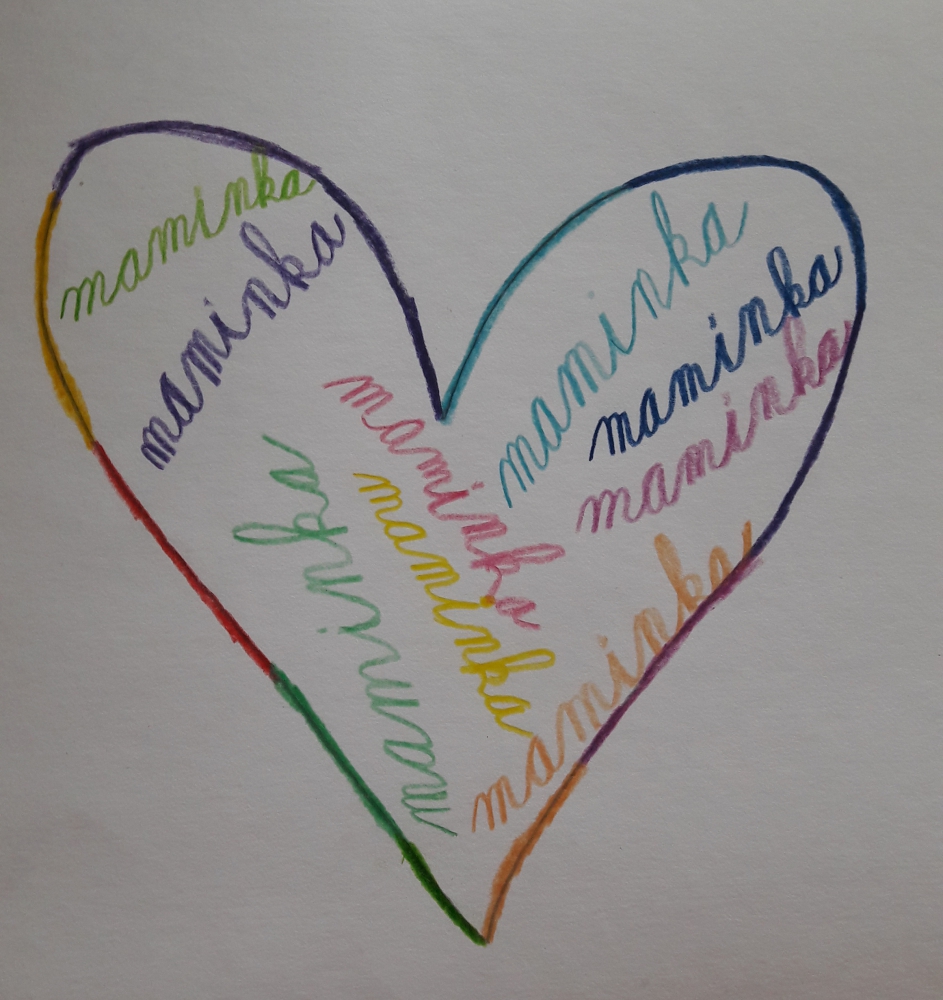 maminka
maminka
maminka
maminka
maminka
maminka
maminka
maminka
maminka